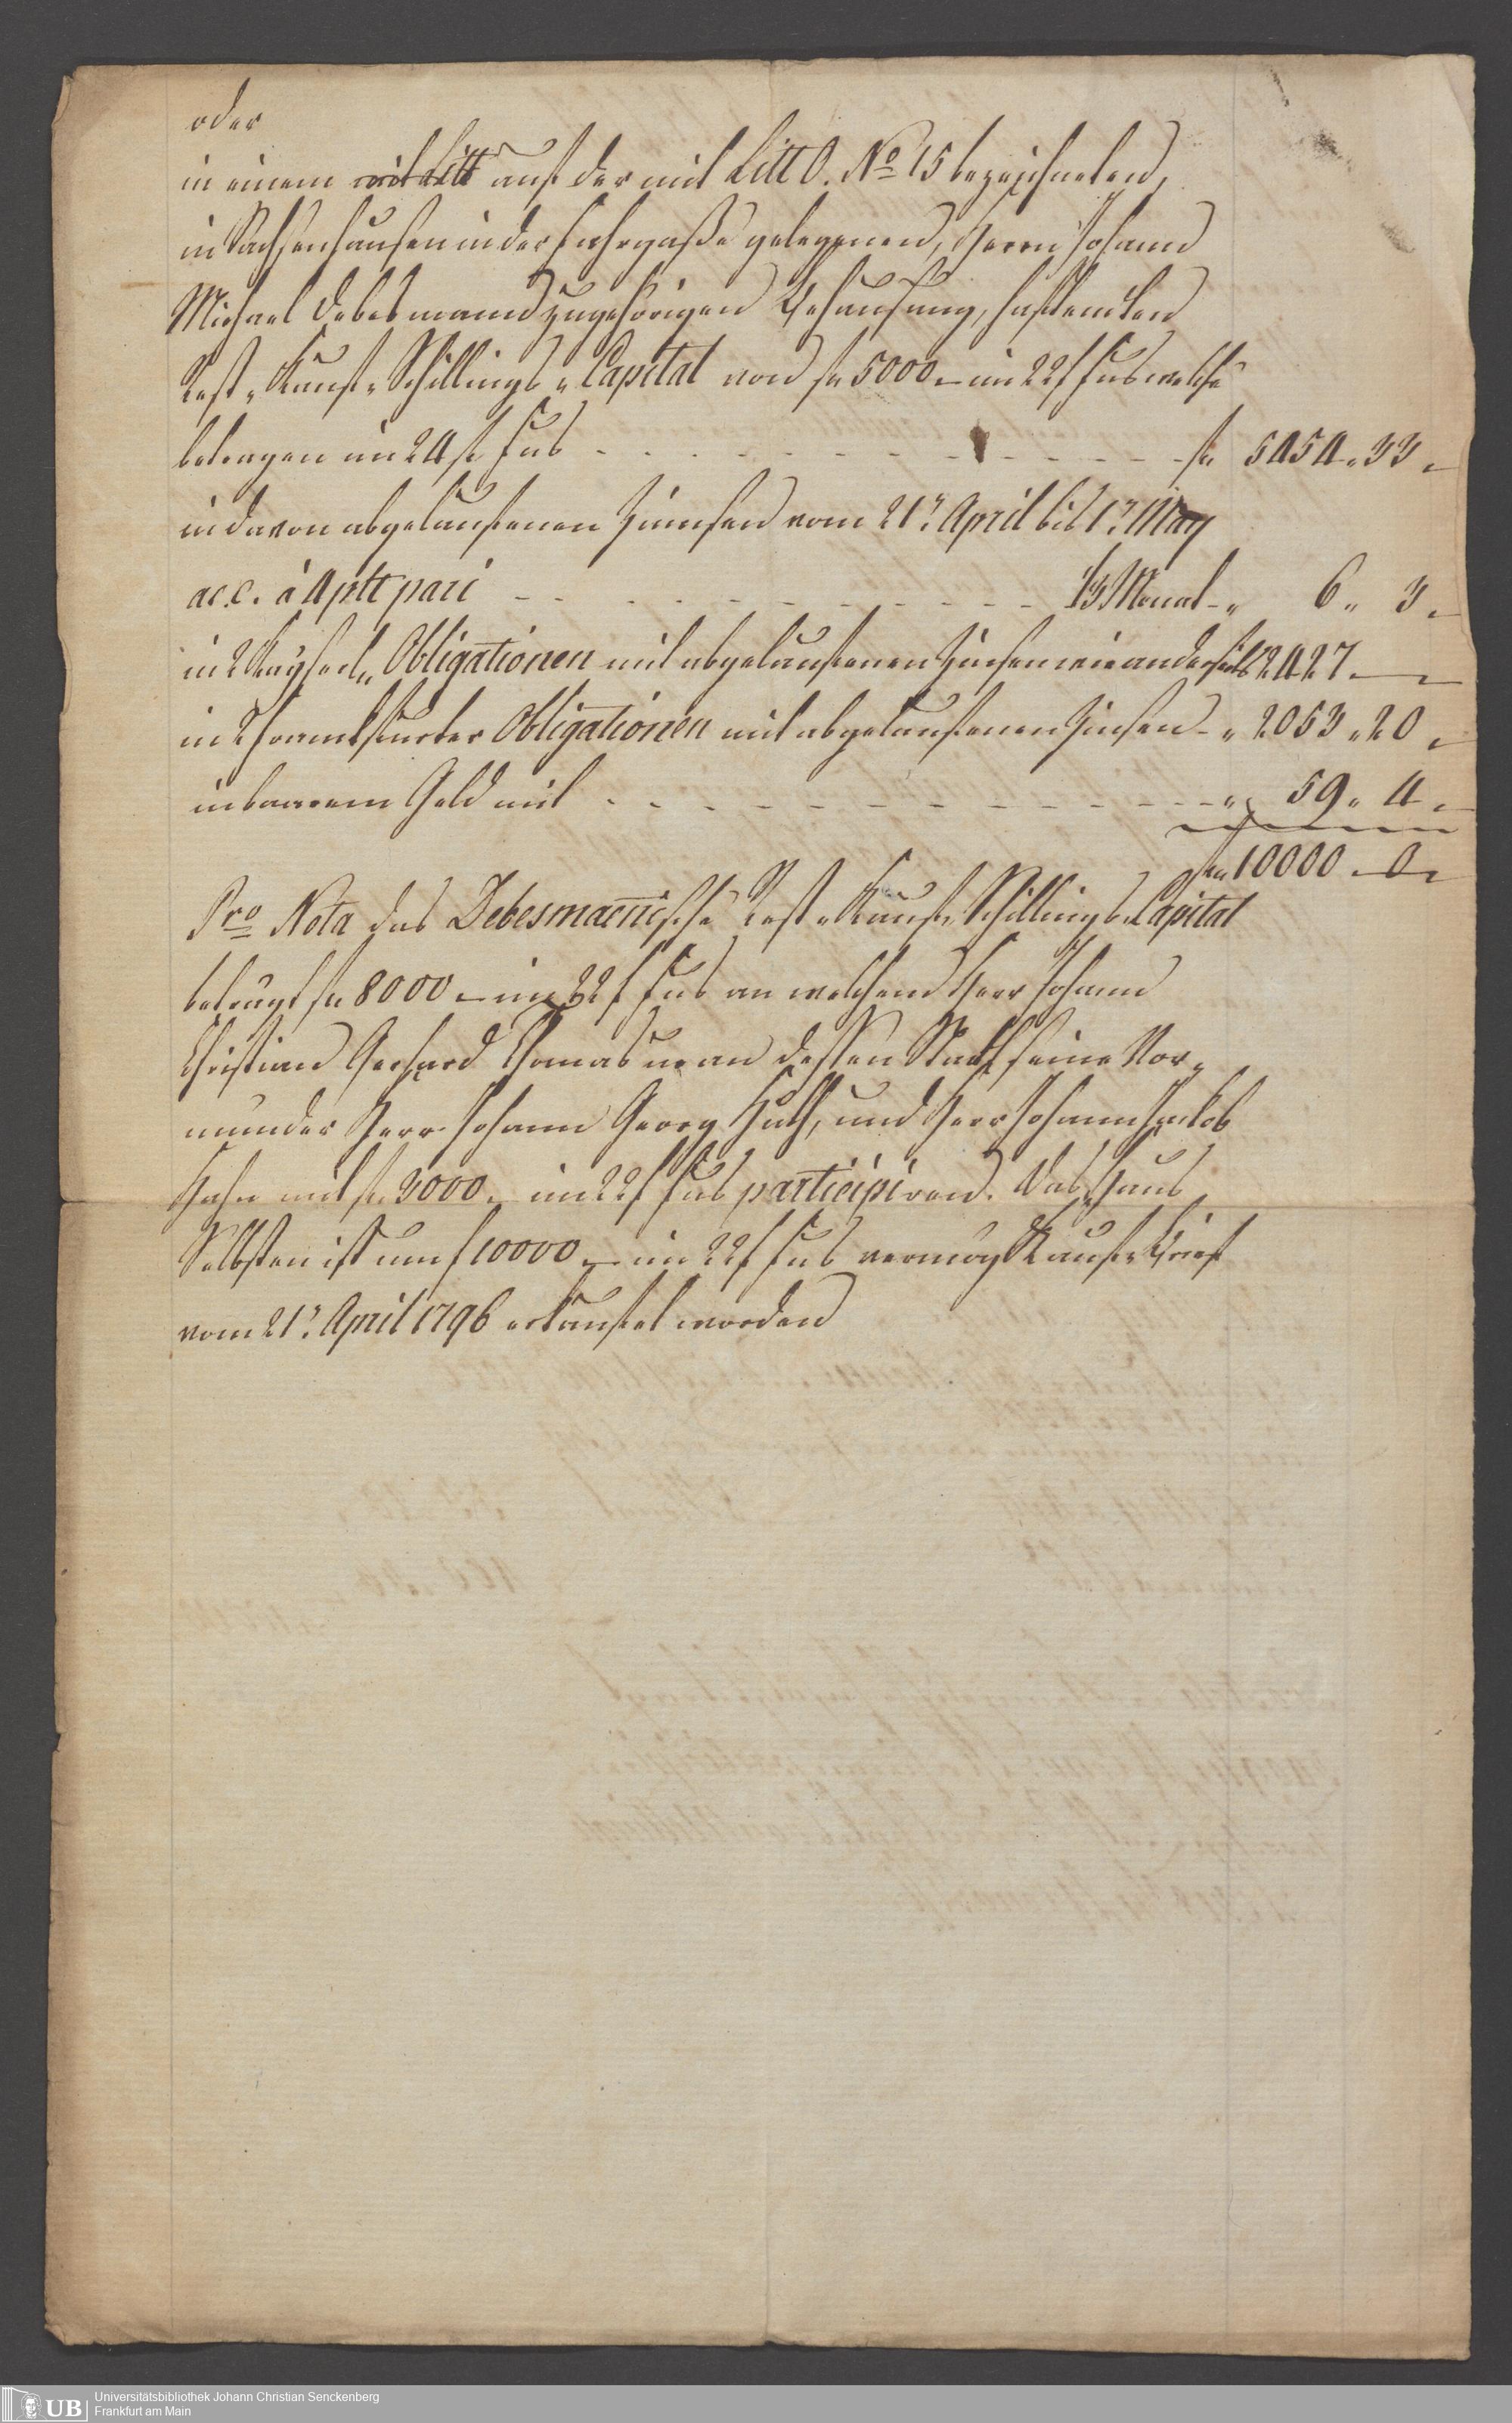 oder
in einem mit Litt auf der mit Litt O. No 15 bezeichneten,
in Sachsenhausen in der Fahrgaße gelegenen, Herrn Johann
Michael Debesmann zugehörigen Behausung, haftenden
Rest„Kauf„Schillings„Capital von fl 5000 – im 22 f Fus welche
betragen im 24 fl Fus - - - - - - - - - - fl 5454 „ 33 „
in davon abgelaufenen Zinnsen vom 21r April bis 1r May
a.c. à 4 pCt pari - - - - - - - - - - 1/3 Monat - „ 6 „ 3 „
in 2 Kayserl„ Obligationen mit abgelaufenen Zinsen wie anderseits 2427 „ —
in Frankfurter Obligationen mit abgelaufenen Zinsen - „ 2053 „ 20 „
in baarem Geld mit - - - - - - - - - - „ 59 „ 4 „
fl 10000 „ 0 „
Pro Nota das Debesmannische Rest„Kauf„Schillings„Capital
betragt fl 8000 – im 22 f Fus an welchem Herr Johann
Christian Gerhard Thomas an dessen Statt seine Vor„
munder Herr Johann Georg Huth, und Herr Johann Jakob
Hahn mit fl 3000 „ im 22 f Fus participiren. Das Haus
Selbsten ist um f 10000 „ im 22 f Fus vermög Kauf„Brief
vom 21r April 1796 erkaufet worden
UB
Universitätsbibliothek Johann Christian Senckenberg
Frankfurt am Main